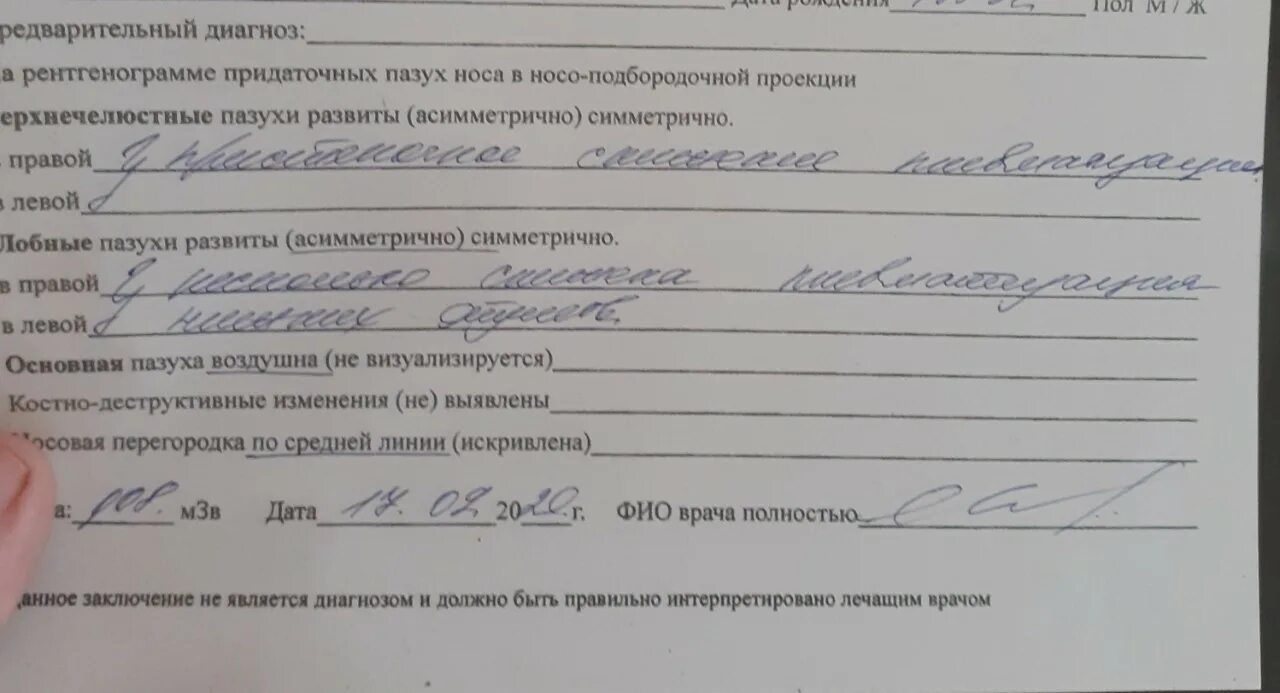 Дата рождения Пол М / Ж
редварительный диагноз:
а рентгенограмме придаточных пазух носа в носо-подбородочной проекции
ерхнечелюстные пазухи развиты (асимметрично) симметрично.
правой пристеночное снижение пневматизации
в левой
Лобные пазухи развиты (асимметрично) симметрично.
в правой несколько снижена пневматизация
в левой нижних отделов.
Основная пазуха воздушна (не визуализируется)
Костно-деструктивные изменения (не) выявлены
Носовая перегородка по средней линии (искривлена)
а: мЗв Дата 17. 02. 2020 г. ФИО врача полностью
анное заключение не является диагнозом и должно быть правильно интерпретировано лечащим врачом